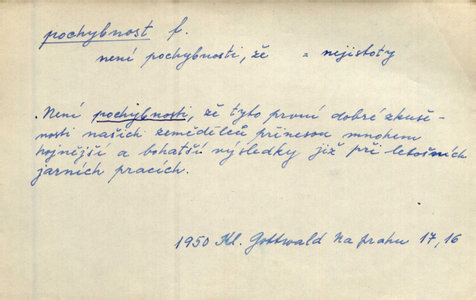 pochybnost f.
není pochybnosti, že = nejistoty
Není pochybnosti, že tyto první dobré zkuše-
nosti našich zemědělců přinesou mnohem
hojnější a bohatší výsledky již při letošních
jarních pracích.
1950 Kl. Gottwald Na prahu 17, 16